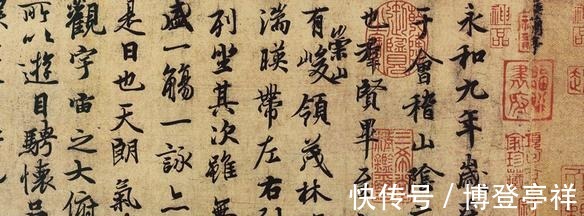 永和九年歲
于會稽山陰
也羣賢畢至
有崇山峻領茂林
湍暎帶左右引
列坐其次雖
盛一觴一詠亦
是日也天朗氣
觀宇宙之大俯
所以遊目騁懷
快传号 / 博登亭祥